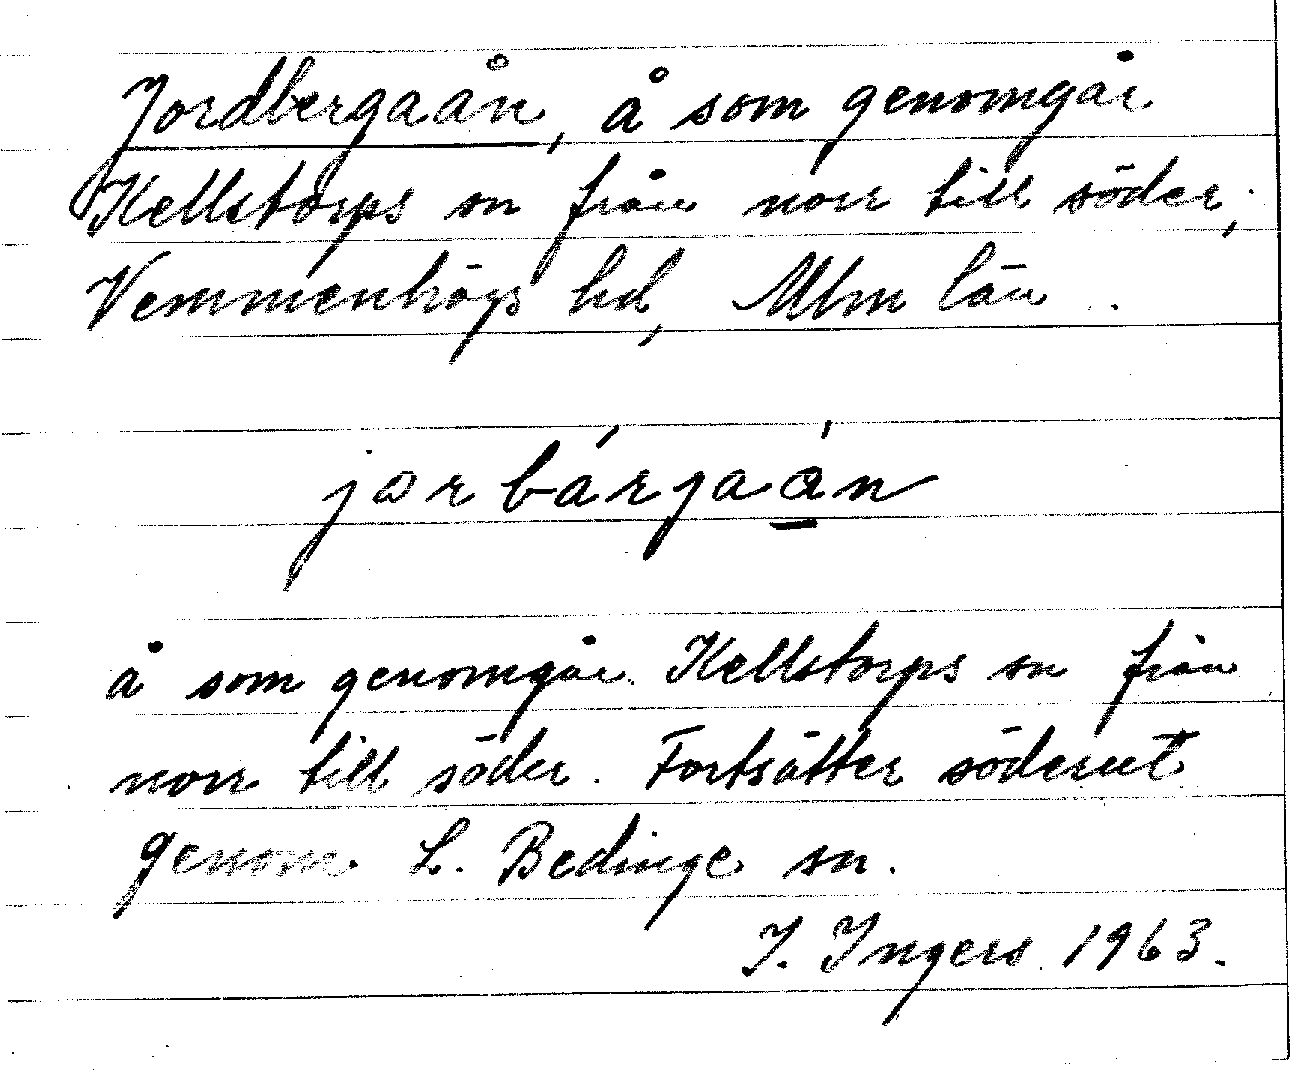 Jordbergaån, å som genomgår
Kellstorps sn från norr till söder,
Vemmenhögs hd, Mlm län.
jɷrbárjaå̲n
å som genomgår Kellstorps sn från
norr till söder. Fortsätter söderut
genom L. Bedinge sn.
I. Ingers 1963.